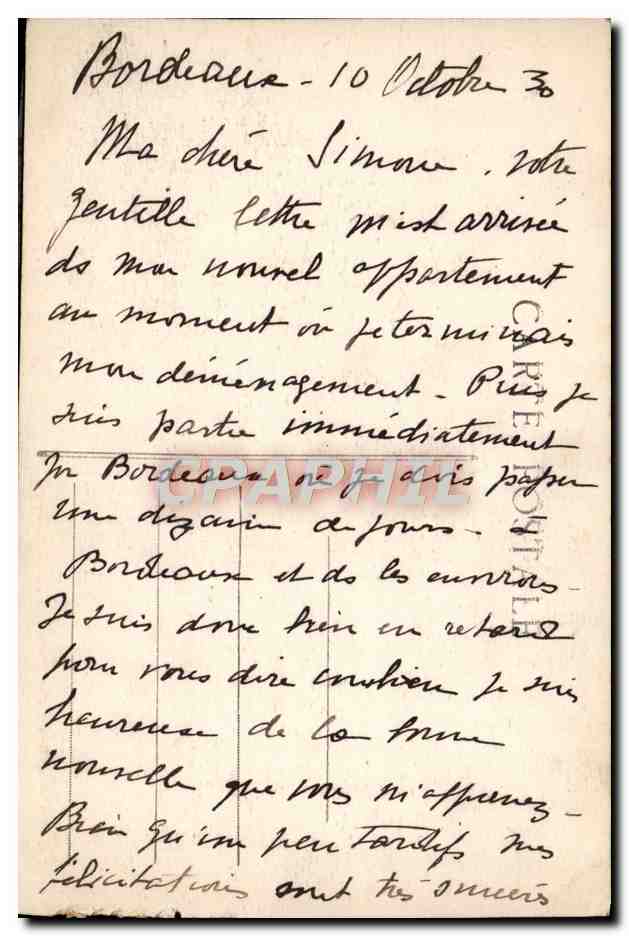 Bordeaux - 10 Octobre 30
Ma chère Simone, votre
gentille lettre m'est arrivée
ds mon nouvel appartement
au moment où je terminais
mon déménagement - Puis je
suis partie immédiatement
pr Bordeaux où je dois passer
une dizaine de jours - à
Bordeaux et ds les environs
Je suis donc bien en retard
pour vous dire combien je suis
heureuse de la bonne
nouvelle que vous m'apprenez -
Bien qu'un peu tardifs mes
félicitations sont très sincères
CARTE POSTALE
CPAPHIL